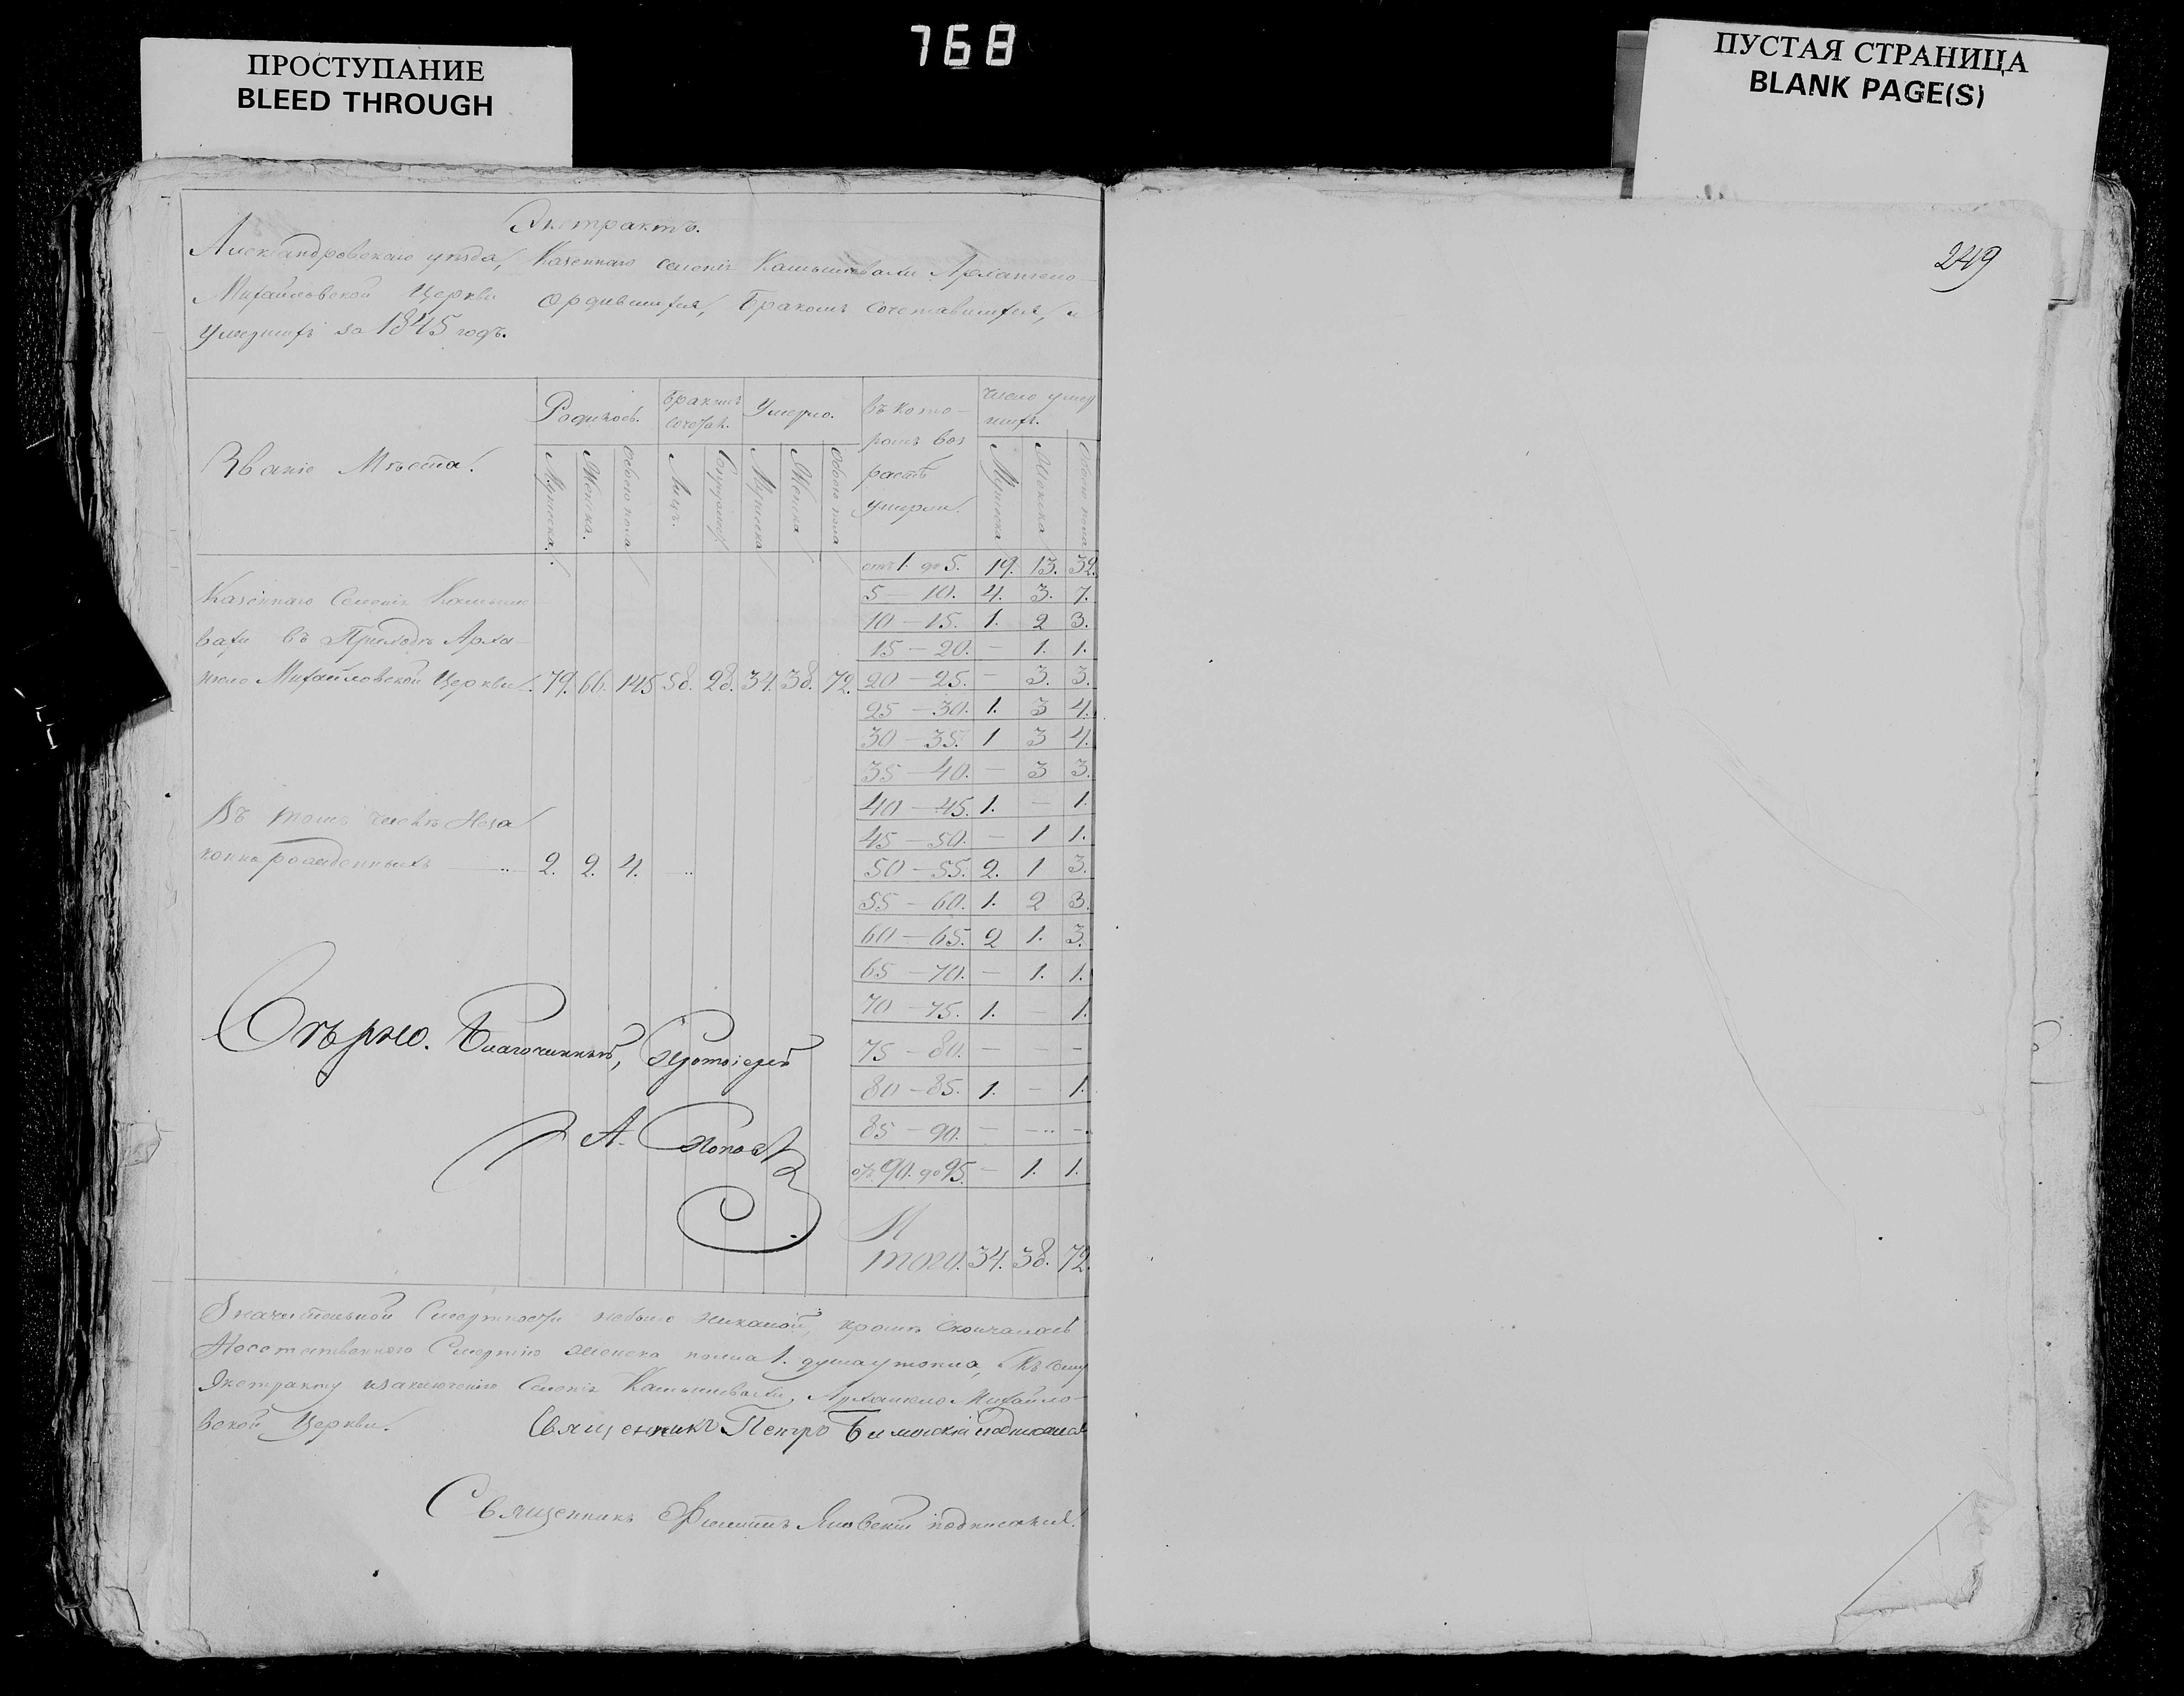 768
ПРОСТУПАНИЕ
BLEED THROUGH
ПУСТАЯ СТРАНИЦА
BLANK PAGE(S)
249
Экстрактъ.
Александровскаго уѣзда, Казеннаго селенія Камышевахи Архангело-
Михайловской Церкви о родившихся, Бракомъ сочетавшихся, и
умершихъ за 1845 годъ.
Званіе Мѣста.
Родилось.
Бракомъ сочетан.
Умерло.
въ кото-
ромъ воз
растѣ
умерли.
Число умер
шихъ.
Мужеска.
Женска.
Обоего пола
Лицъ.
Супружес
Мужеска
Женска
Обоего пола
Мужеска
Женска
Обоего пола
отъ 1. до 5. 19. 13. 32.
5 — 10. 4. 3. 7.
10 — 15. 1. 2 3.
15 — 20. — 1. 1.
20 — 25. — 3. 3.
25 — 30. 1. 3 4.
30 — 35. 1 3 4.
35 — 40. — 3 3.
40 — 45. 1. — 1.
45 — 50. — 1 1.
50 — 55. 2. 1 3.
55 — 60. 1. 2 3.
60 — 65. 2 1. 3.
65 — 70. — 1. 1.
70 — 75. 1. — 1.
75 — 80. — — —
80 — 85. 1. — 1.
85 — 90. — — —
отъ 90. до 95. — 1. 1.
И
того. 34. 38. 72.
Казеннаго Селенія Камыше
вахи въ Приходѣ Арха
нгело Михайловской Церкви. 79. 66. 145 58. 28. 34. 38. 72.
Въ томъ числѣ Неза
коннорожденныхъ 2. 2. 4.
Свѣрно. Благочинный, Протоіерей
А. Поповъ
Значительной Смертности небыло никакой, кромѣ скончалась
Неестественною Смертію женска полла 1. душа утопла, Къ сему
Экстракту Селенія Камышевахи, Архангело Михайло-
вской Церкви.
Священникъ Петръ подписался
Священникъ Филиппъ подписался.